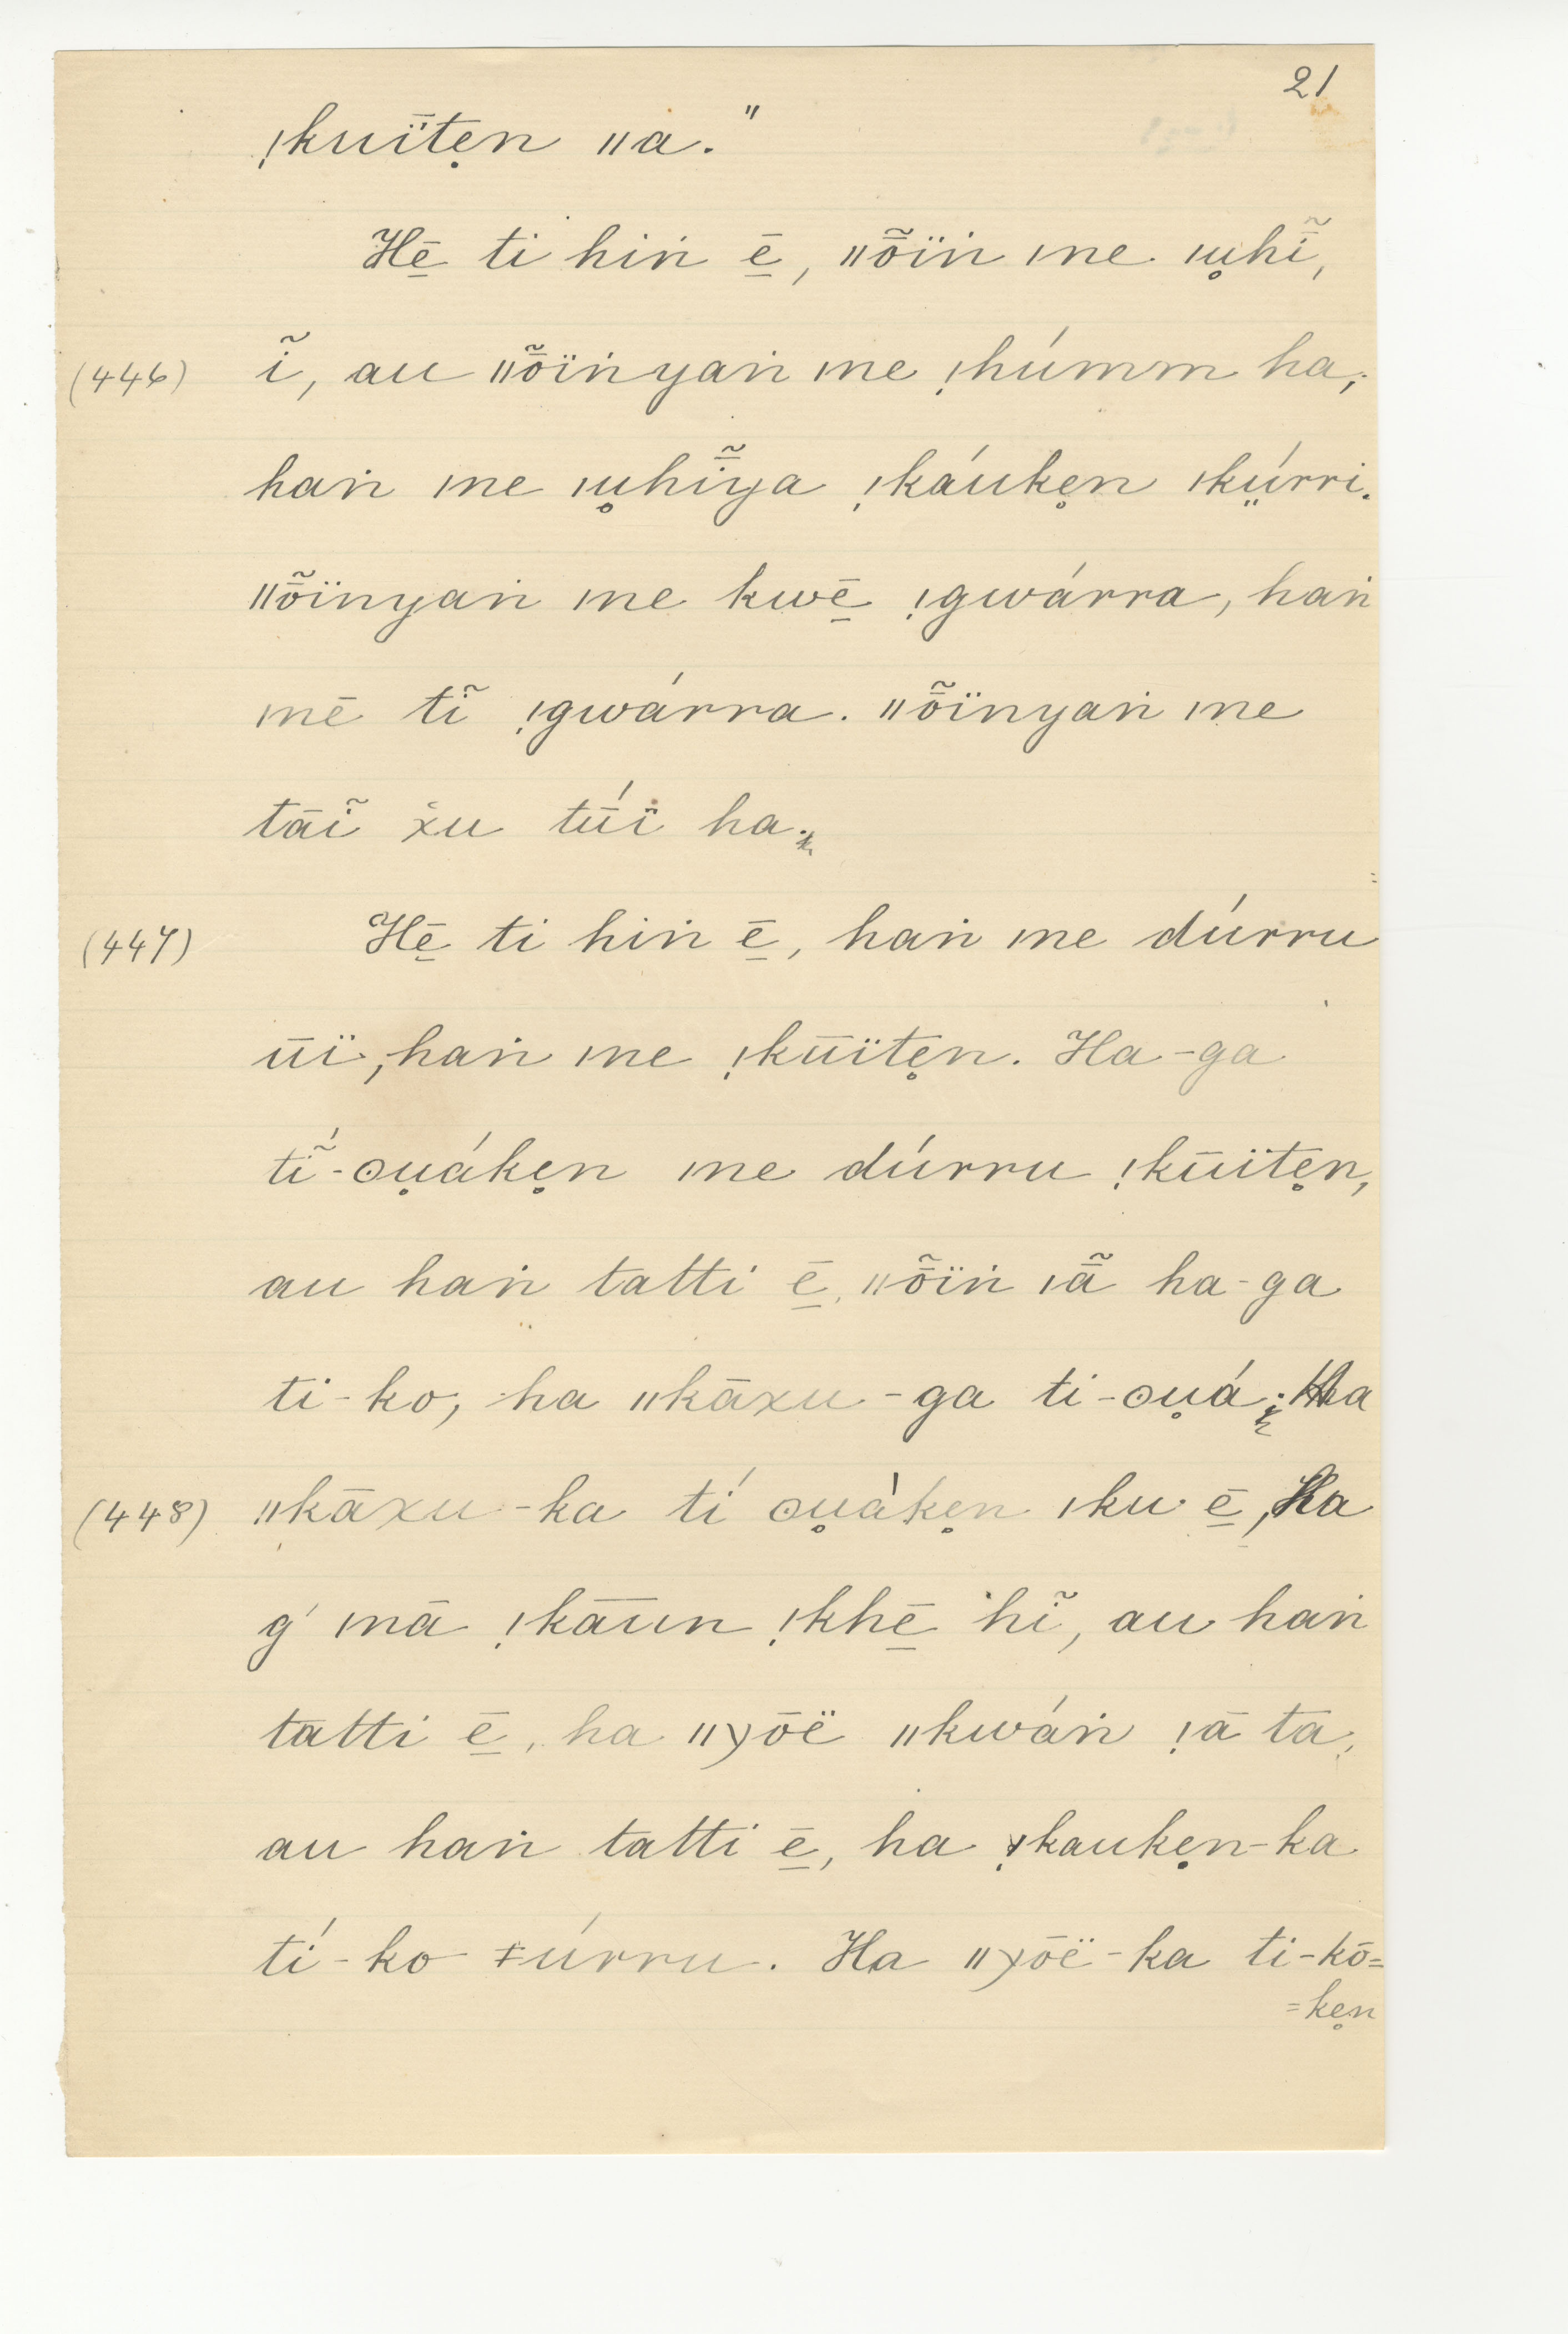 21
!kuïte̥n ǁa."
Hē̠ ti hiṅ ē̠, ǁȭïṅ ǀne ǀu̥hĩ̄,
(446) ĩ, au ǁȭïṅyaṅ ǀne !húmm ha;
haṅ ǀne ǀu̥hĩ̄ya !káuke̥n ǀkṳ́rri.
ǁȭïnyaṅ ǀne kwē̠ !gwárra, haṅ
ǀnē tĩ !gwárra. ǁȭïnyaṅ ǀne
tāĩ x̌u tū́ï ha.
(447) Hē̠ ti hiṅ ē̠, haṅ ǀne dúrru
ūï, haṅ ǀne !kūïte̥n. Ha-ga
tĩ́-ʘu̥áke̥n ǀne dúrru !kūïte̥n,
au haṅ tatti ē̠, ǁȭïṅ ǀã̄ ha-ga
ti-ko, ha ǁkāxu-ga ti-ʘu̥á; ha
(448) ǁkāxu-ka tí ʘu̥àke̥n ǀku ē̠, ha
g' ǀnā !kāūn !khē̠ hĩ, au haṅ
tātti ē̠, ha ǁχōë ǁkwáṅ !ā ta,
au haṅ tatti ē̠, ha !kauke̥n-ka
tí-ko ǂúrru. Ha ǁχōë-ka ti-kō=
=ke̥n